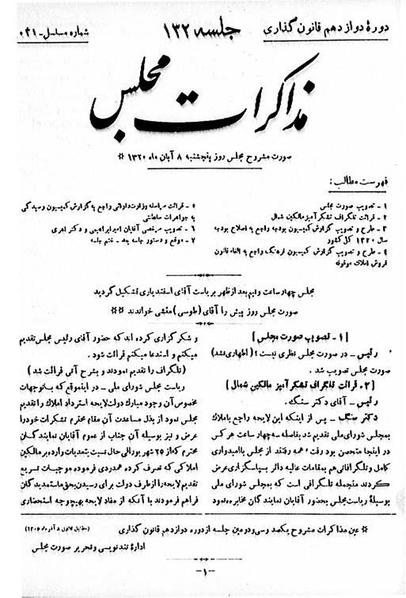 دورهٔ دوازدهم قانون گذاری
جلسه ۱۳۲
شماره مسلسل - ۰۳۱
مذاکرات مجلس
صورت مشروح مجلس روز پنجشنبه ۸ آبان ماه ۱۳۲۰ *
فهرست مطالب:
۱ - تصویب صورت مجلس
۲ - قرائت تلگراف تشکر آمیز مالکین شمال
۳ - طرح و تصویب گزارش کمیسیون بودجه راجع به اصلاح بودجه
سال ۱۳۲۰ کل کشور
۴ - طرح و تصویب گزارش کمیسیون فرهنگ راجع به الغاء قانون
فروش املاک موقوفه
قرائت مراسله وزارت دارائی راجع به گزارش کمیسیون رسیدگی
به جواهرات سلطنتی
تصویب مرخصی آقایان امیر ابراهیمی و دکتر اهری
۷ - موقع و دستور جلسه بعد - ختم جلسه
مجلس چهار ساعت و نیم بعد از ظهر بریاست آقای اسفندیاری تشکیل گردید
صورت مجلس روز پیش را آقای (طوسی) منشی خواندند *
[۱ - تصویب صورت مجلس]
رئیس - در صورت مجلس نظری نیست؟ (اظهاری نشد)
صورت مجلس تصویب شد.
[۲ - قرائت تلگراف تشکر آمیز مالکین شمال]
رئیس - آقای دکتر سنگ.
دکتر سنگ - پس از اینکه این لایحه راجع باملاک
به مجلس شورای ملی تقدیم شد بفاصله سه چهار ساعت هر کس
در اینجا متحصن بود رفت همه رفتند از مجلس با امیدواری
کامل و تلگرافاتی هم به مقامات عالیه دائر بسپاسگزاری عرض
کردند منجمله تلگرافی است که به مجلس شورای ملی
بوسیلهٔ ریاست مجلس بحضور آقایان نمایندگان مخابره نموده
و شکر گزاری کرده اند که حضور آقای رئیس مجلس تقدیم
میکنم و استدعا میکنم قرائت شود.
(تلگراف را تقدیم نمودند و بشرح آتی قرائت شد)
ریاست مجلس شورای ملی - در اینموقع که بتوجهات
مخصوص آن وجود مبارک دولت لایحه استرداد املاک را تقدیم
مجلس نمود از بذل مساعدت آن مقام محترم تشکرات خود را
عرض و نیز بوسیله آن جناب از عموم آقایان نمایندگان
محترم که از ۲۵ شهریور الی حال نسبت بتعدیات وارده بر مالکین
املاکی که تصرف کرده همدردی فرموده موجبات تسریع
تقدیم لایحه را از طرف دولت برای رسیدن بحق ماستمدیدگان
فراهم فرمودند با آنکه از مفاد لایحه بهیچوجه استحضاری
* عین مذاکرات مشروح یکصد و سی و دومین جلسه از دوره دوازدهم قانون گذاری
اداره تند نویسی و تحریر صورت مجلس
- ۱ -